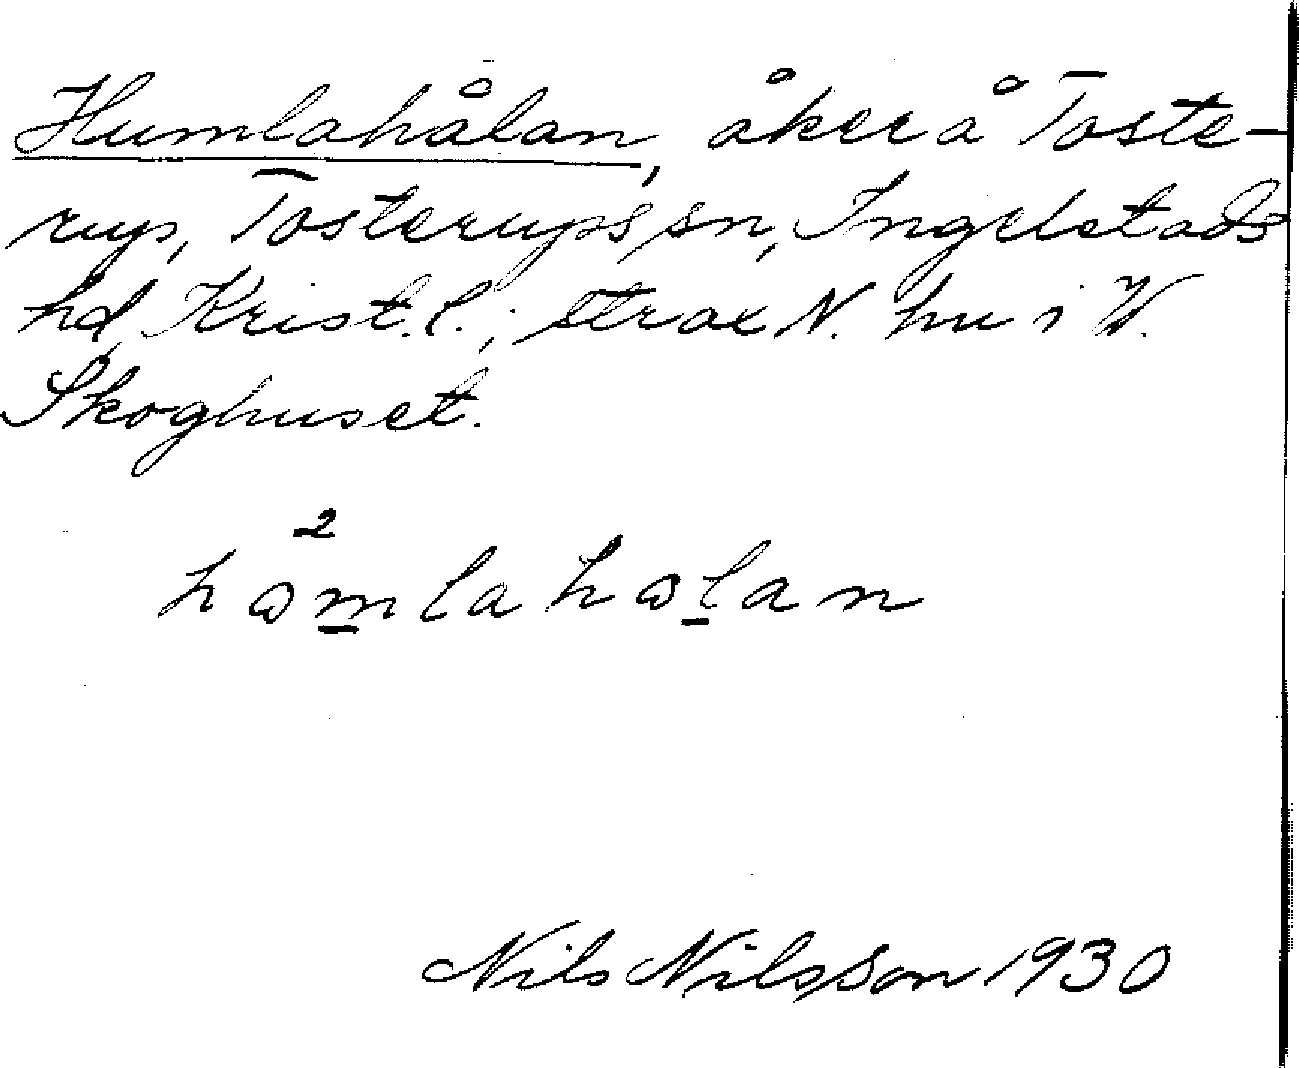 Humlahålan, åker å Toste-
rup, Tosterups sn, Ingelstads
hd, Krist. l.; strax N. hus i V.
Skoghuset.
2
hɷmlahɷlan
Nils Nilsson 1930